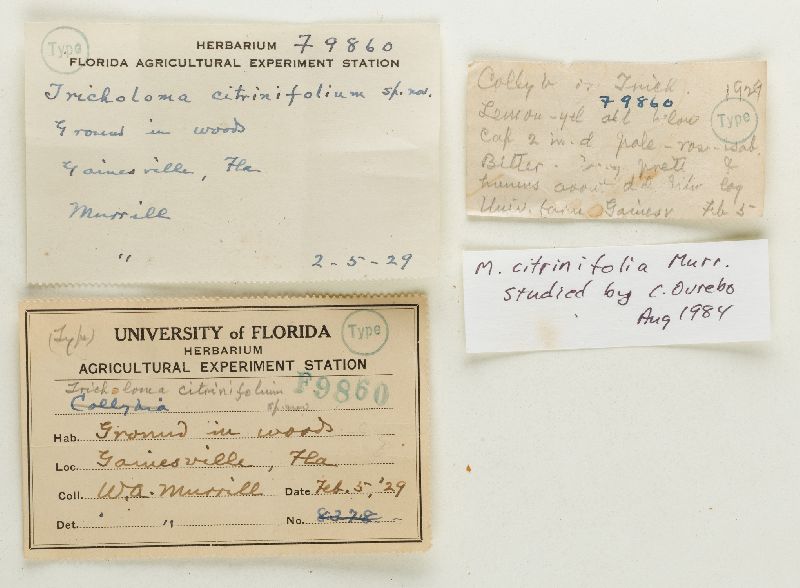 Type
HERBARIUM F9860
FLORIDA AGRICULTURAL EXPERIMENT STATION
Tricholoma citrinifolium sp. nov.
Ground in woods
Gainesville, Fla
Murrill
" 2-5-29
Collyb or Trich. 1929
79860
Type
Lemon-yel all below
Cap 2 in. d pale-
Bitter.
humus log
Univ. farm Gainesv Feb 5
M. citrinifolia Murr.
studied by C. Ovrebo
Aug 1984
(Type) UNIVERSITY of FLORIDA Type
HERBARIUM
AGRICULTURAL EXPERIMENT STATION
Tricholoma citrinifolium F9860
Collybia sp. nov.
Hab. Ground in woods
Loc. Gainesville, Fla
Coll. W.A. Murrill Date Feb. 5, '29
Det. " " No. 8378